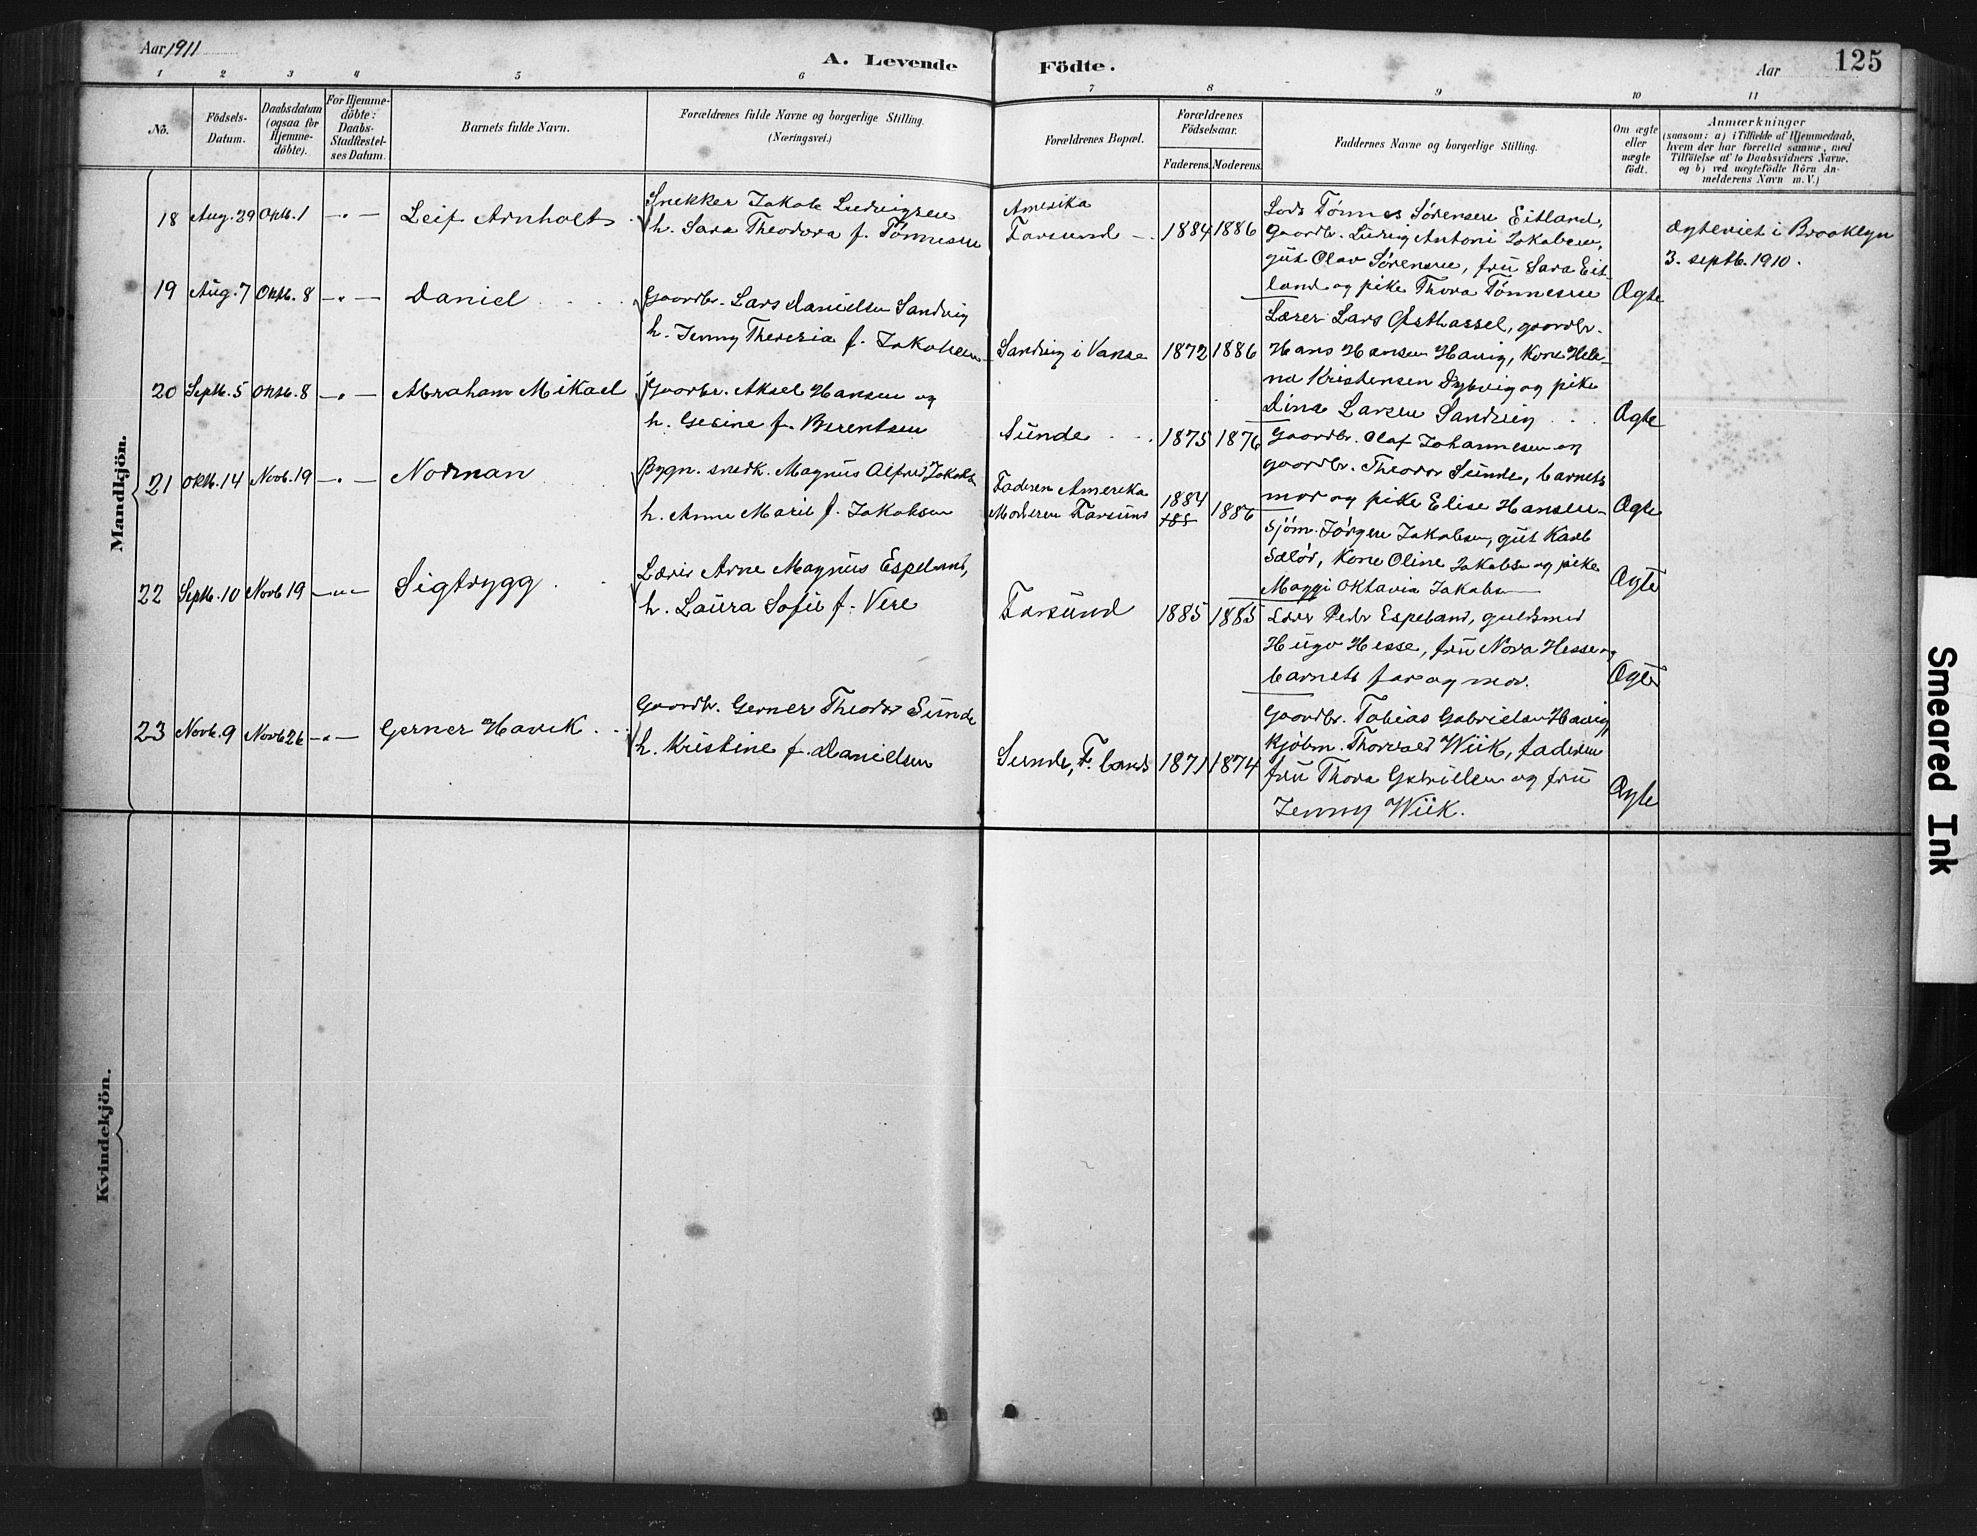 Aar 1911
A. Levende Födte.
Aar
125
1 2 3 4 5 6 7 8 9 10 11
No.
Födsels-Datum.
Daabsdatum (ogsaa for Hjemme-döbte).
For Hjemme-döbte: Daabs-Stadfæstel-ses Datum.
Barnets fulde Navn.
Forældrenes fulde Navne og borgerlige Stilling.
(Næringsvei.)
Forældrenes Bopæl.
Forældrenes Födselsaar.
Faderens. Moderens.
Faddernes Navne og borgerlige Stilling.
Om ægte eller uægte födt.
Anmærkninger
(saasom: a) i Tilfælde af Hjemmedaab,
hvem der har forrettet samme, med
Tilföielse af to Daabsvidners Navne.
og b) ved uægtefödte Börn An-
melderens Navn m. V.)
Mandkjön.
18 Aug. 29 Oktb. 1 — " — Leif Arnholt
Snekker Jakob Ludvigsen
h. Sara Theodora f. Tönnesen
Amerika
Farsund 1884 1886
Lods Tönnes Sörensen Eitland,
Gaardbr. Ludvig Antoni Jakobsen,
gut Olav Sörensen, fru Sara Eit-
land og pike Thora Tönnesen Ægte
Ægteviet i Brooklyn
3. septb. 1910.
19 Aug. 7 Oktb. 8 — " — Daniel
Gaardbr. Lars Danielsen Sandvig
h. Jenny Theresia f. Jakobsen
Sandvig i Vanse 1872 1886
Lærer Lars Østhassel, gaardbr.
Hans Hansen Havig, Kone Hele-
na Kristensen Dybvig og pike
Dina Larsen Sandvig Ægte
20 Septb. 5 Oktb. 8 — " — Abraham Mikael
Gaardbr. Aksel Hansen og
h. Gesine f. Berentsen
Sunde 1875 1876
Gaardbr. Olaf Johannesen og
gaardbr. Theodor Sunde, barnets
mor og pike Elise Hansen Ægte
21 Oktb. 14 Novb. 19 — " — Norman
Bygn. snedk. Magnus Alfred Jakobs
h. Anne Marie f. Jakobsen
Faderen Amerika
Moderen Farsund 1884 1886
Sjöm. Jörgen Jakobsen, gut Karl
Sælör, Kone Oline Jakobsen og pike
Maggi Oktavia Jakobsen Ægte
22 Septb. 10 Novb 19 — " — Sigtrygg
Lærer Arne Magnus Espeland,
h. Laura Sofie f. Vere
Farsund 1885 1885
Lærer Peder Espeland, guldsmed
Hugo Hesse, fru Nora Hesse og
barnets far og mor. Ægte
23 Novb. 9 Novb 26 — " — Gerner Havik
Gaardbr. Gerner Theodor Sunde
h. Kristine f. Danielsen
Sunde, F. lands 1871 1874
Gaardbr. Tobias Gabrielsen Havig
Kjöbm. Thorvald Wiik, faderen
fru Thora Gabrielsen og fru
Jenny Wiik. Ægte
Kvindekjön.
Smeared Ink